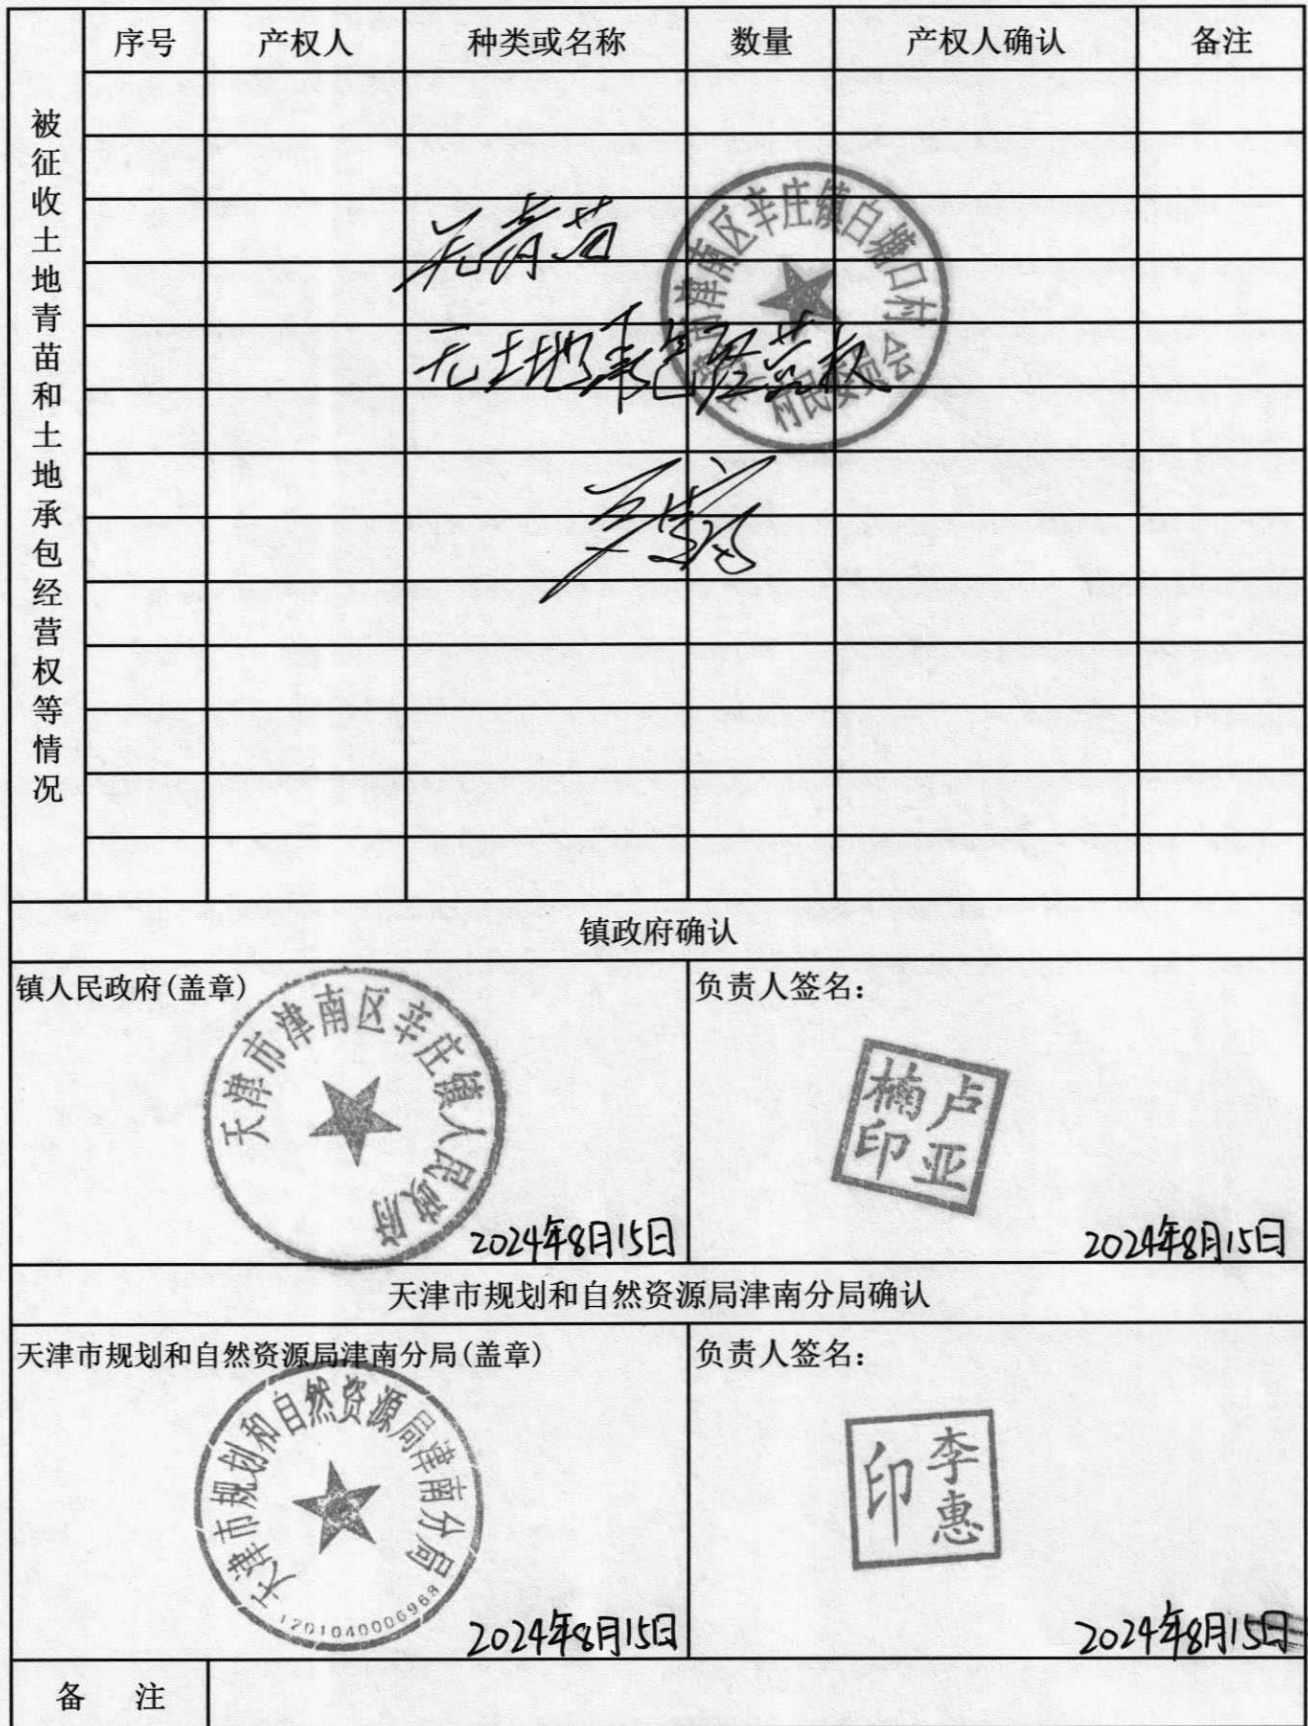 序号 产权人 种类或名称 数量 产权人确认 备注
被征收土地青苗和土地承包经营权等情况
无青苗
无土地承包经营权
天津市津南区辛庄镇白塘口村
村民委员会
镇政府确认
镇人民政府(盖章)
天津市津南区辛庄镇人民政府
2024年8月15日
负责人签名：
卢亚楠印
2024年8月15日
天津市规划和自然资源局津南分局确认
天津市规划和自然资源局津南分局(盖章)
天津市规划和自然资源局津南分局
1201040006968
2024年8月15日
负责人签名：
李惠印
2024年8月15日
备 注